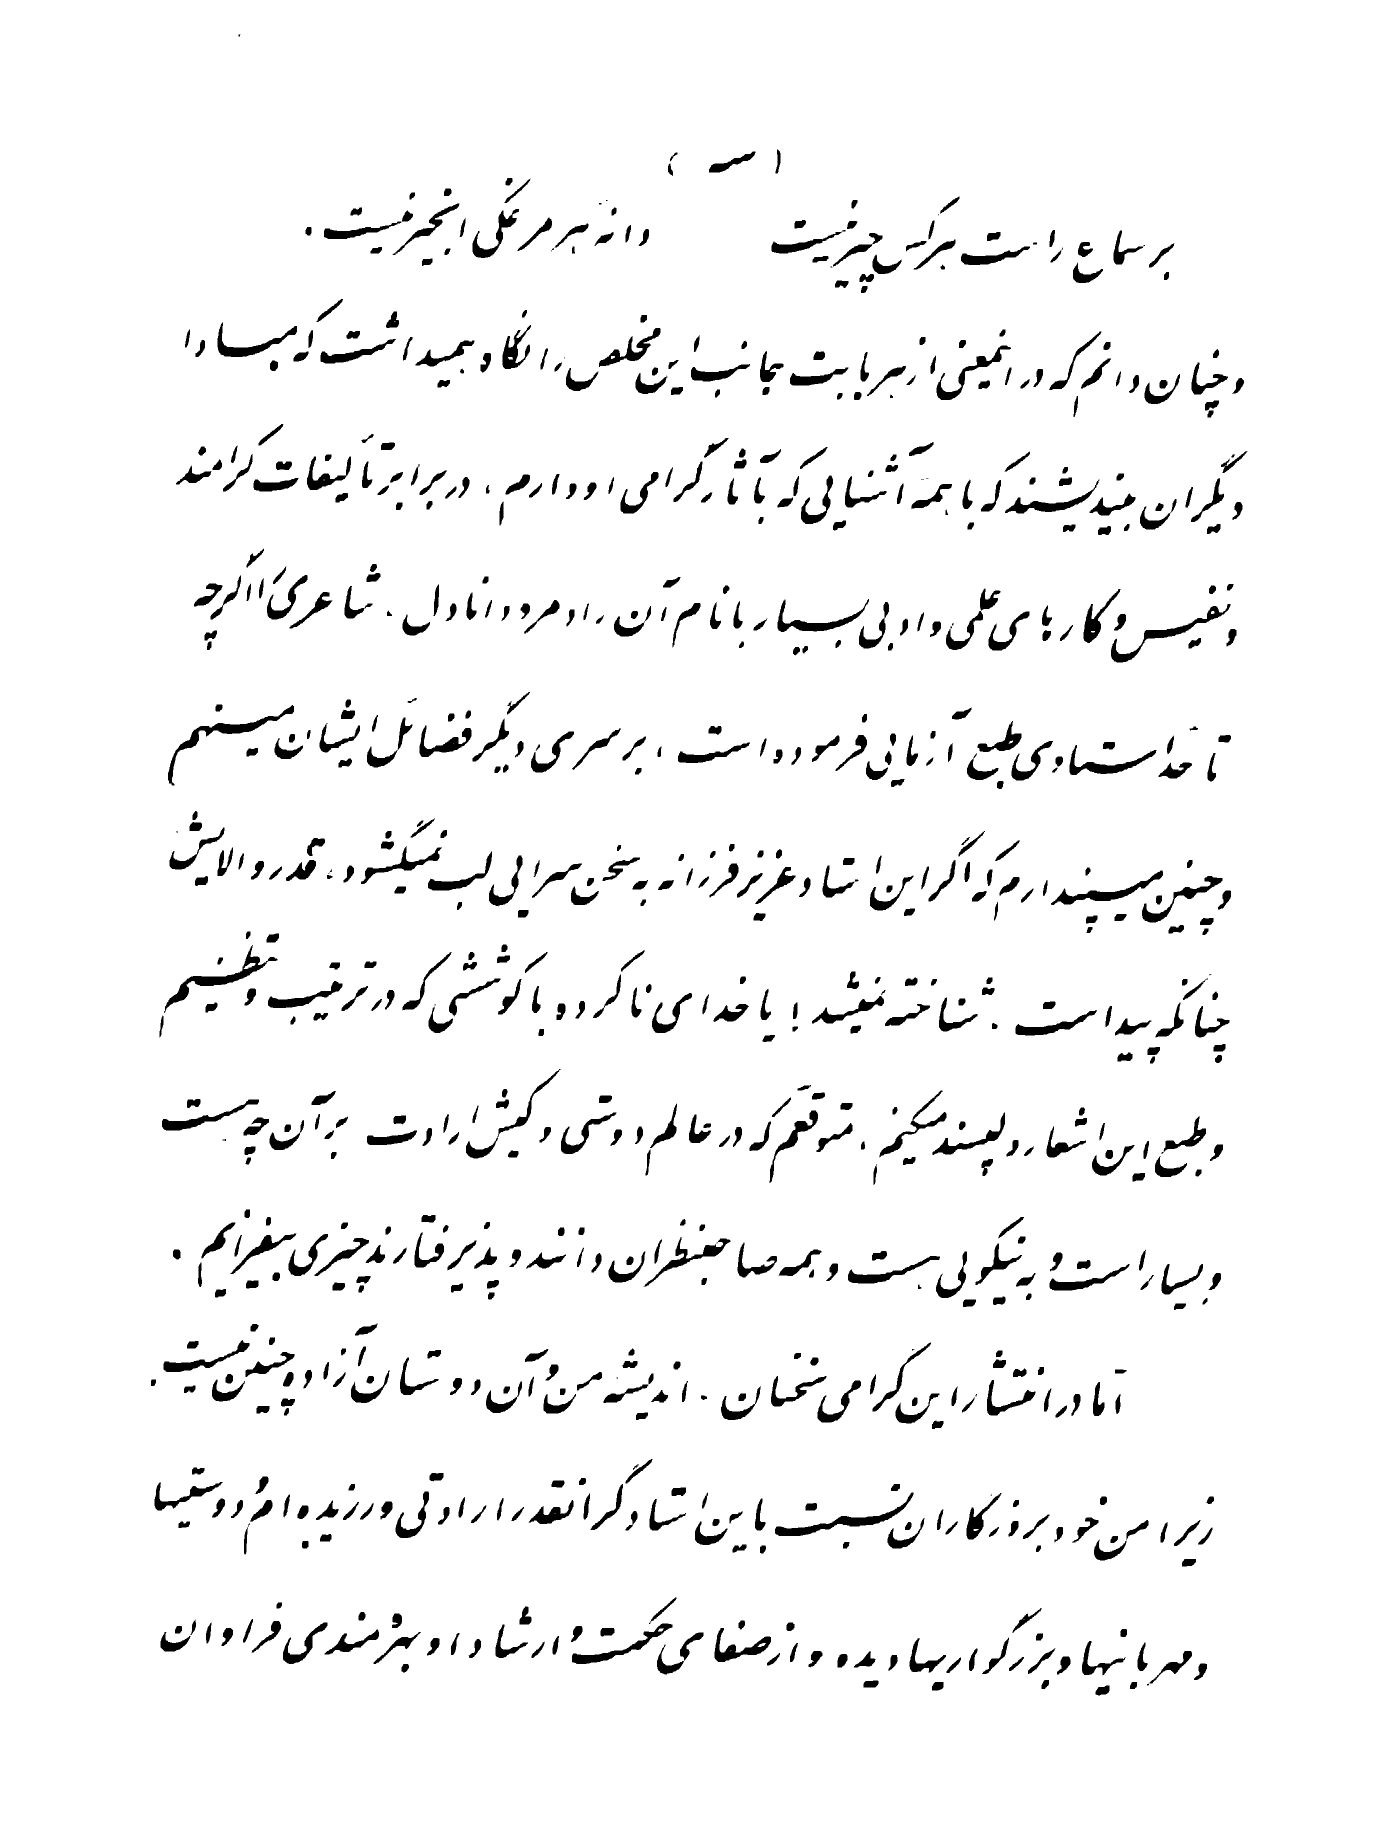 ( سه )
بر سماع راست هر کس چیر نیست دانهٔ هر مرغکی انجیر نیست .
و چنان دانم که در اینمعنی از هر بابت بجانب این مخلص را نگاه بمیداشت که مبادا
دیگران بیندیشند که با همه آشنایی که بآثار گرامی او دارم ، در برابر تألیفات گرامند
و نفیس و کارهای علمی و ادبی بسیار با نام آن رادمرد دانادل ، شاعری را اگرچه
تا حد استادی طبع آزمایی فرموده است ، بر سری دیگر فضائل ایشان مینهم
و چنین میپندارم که اگر این استاد عزیز فرزانه به سخن سرایی لب نمیگشود ، قدر والایش
چنانکه پیداست ، شناخته نمیشد ! یا خدای ناکرده با کوششی که در ترتیب و تنظیم
و طبع این اشعار دلپسند میکنم ، متوقعم که در عالم دوستی و کیش ارادت بر آن چه هست
و بسیار است و به نیکویی هست و همه صاحبنظران دانند و پذیرفتارند چیزی بیفزایم .
اما در انتشار این گرامی سخنان . اندیشه من و آن دوستان آزاده چنین نیست .
زیرا من خود بروزگاران نسبت باین استاد گرانقدر ارادتی ورزیده ام و دوستیها
و مهربانیها و بزرگواریها دیده و از صفای حکمت و ارشاد او بهره مندی فراوان